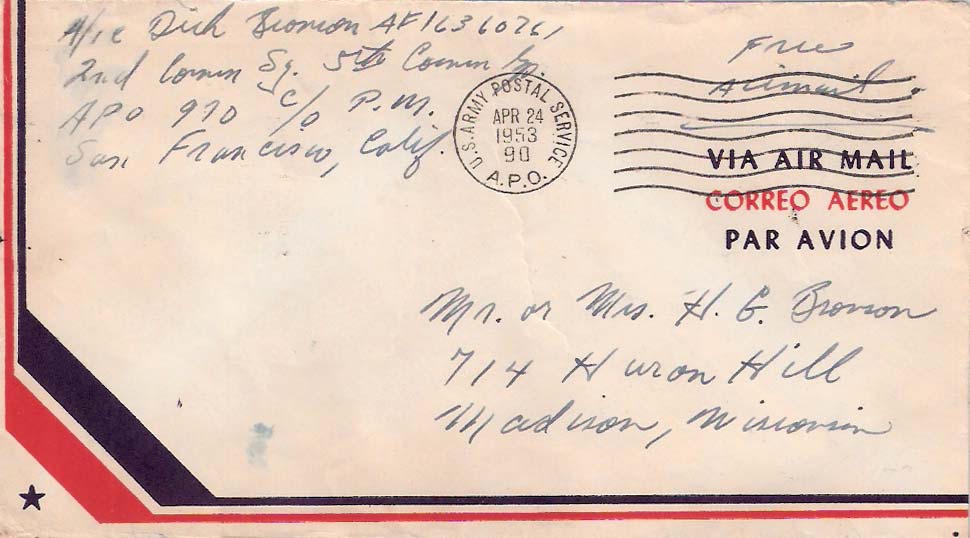 A/1c Dick Bronson AF16360761
2nd Comm Sq. 5th Comm Gp.
APO 970 c/o P.M.
San Francisco, Calif.
Free
Airmail.
U.S. ARMY POSTAL SERVICE
APR 24
1953
90
A.P.O.
VIA AIR MAIL
CORREO AEREO
PAR AVION
Mr. or Mrs. H. G. Bronson
714 Huron Hill
Madison, Wisconsin